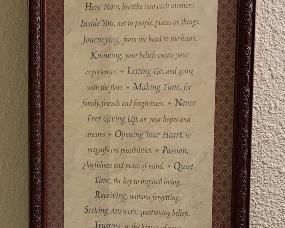 Here Now, breathe into each moment.
Inside You, not in people, places or things.
Journeying, from the head to the heart.
Knowing, your beliefs create your
experiences. + Letting Go, and going
with the flow. + Making Time, for
family, friends and forgiveness. + Never
Ever Giving Up, on your hopes and
dreams + Opening Your Heart, to
magnificent possibilities. + Passion,
playfulness and peace of mind. + Quiet
Time, the key to inspired living.
Receiving, without forgetting.
Seeking Answers, questioning beliefs.
Trusting, in the